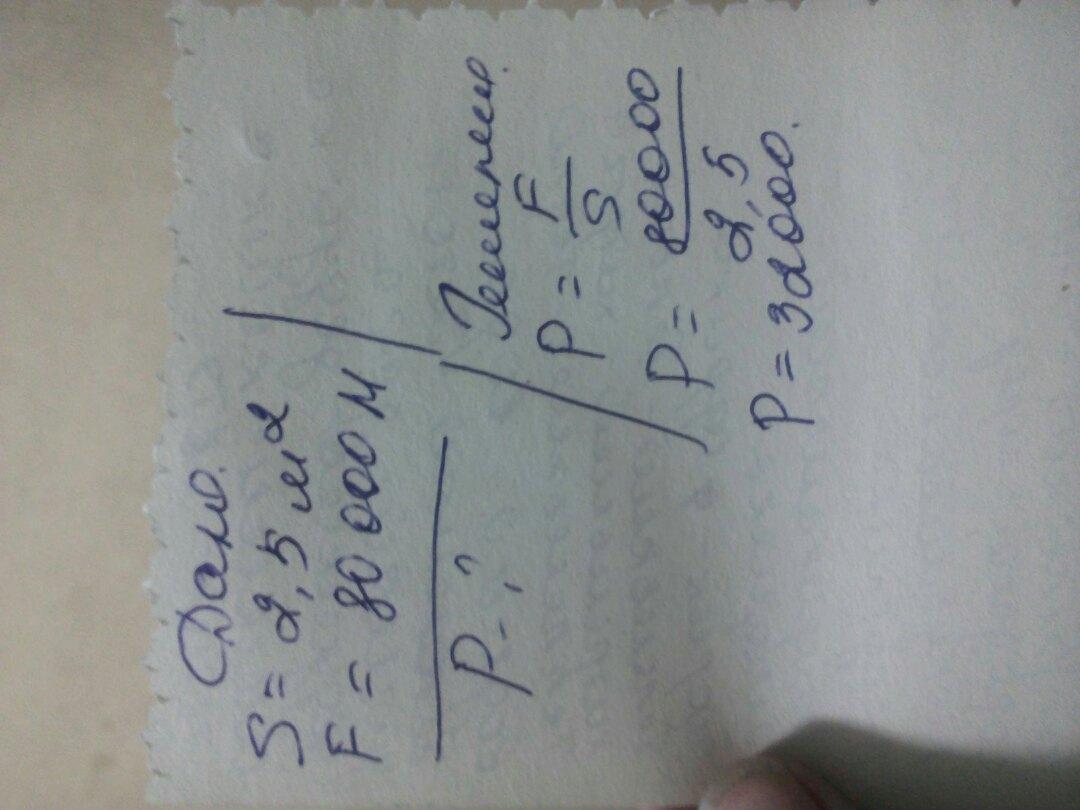 Дано.
S = 2,5 м²
F = 80 000 Н
P - ?
Решение.
P = F/S
P = 80000/2,5
P = 32000.